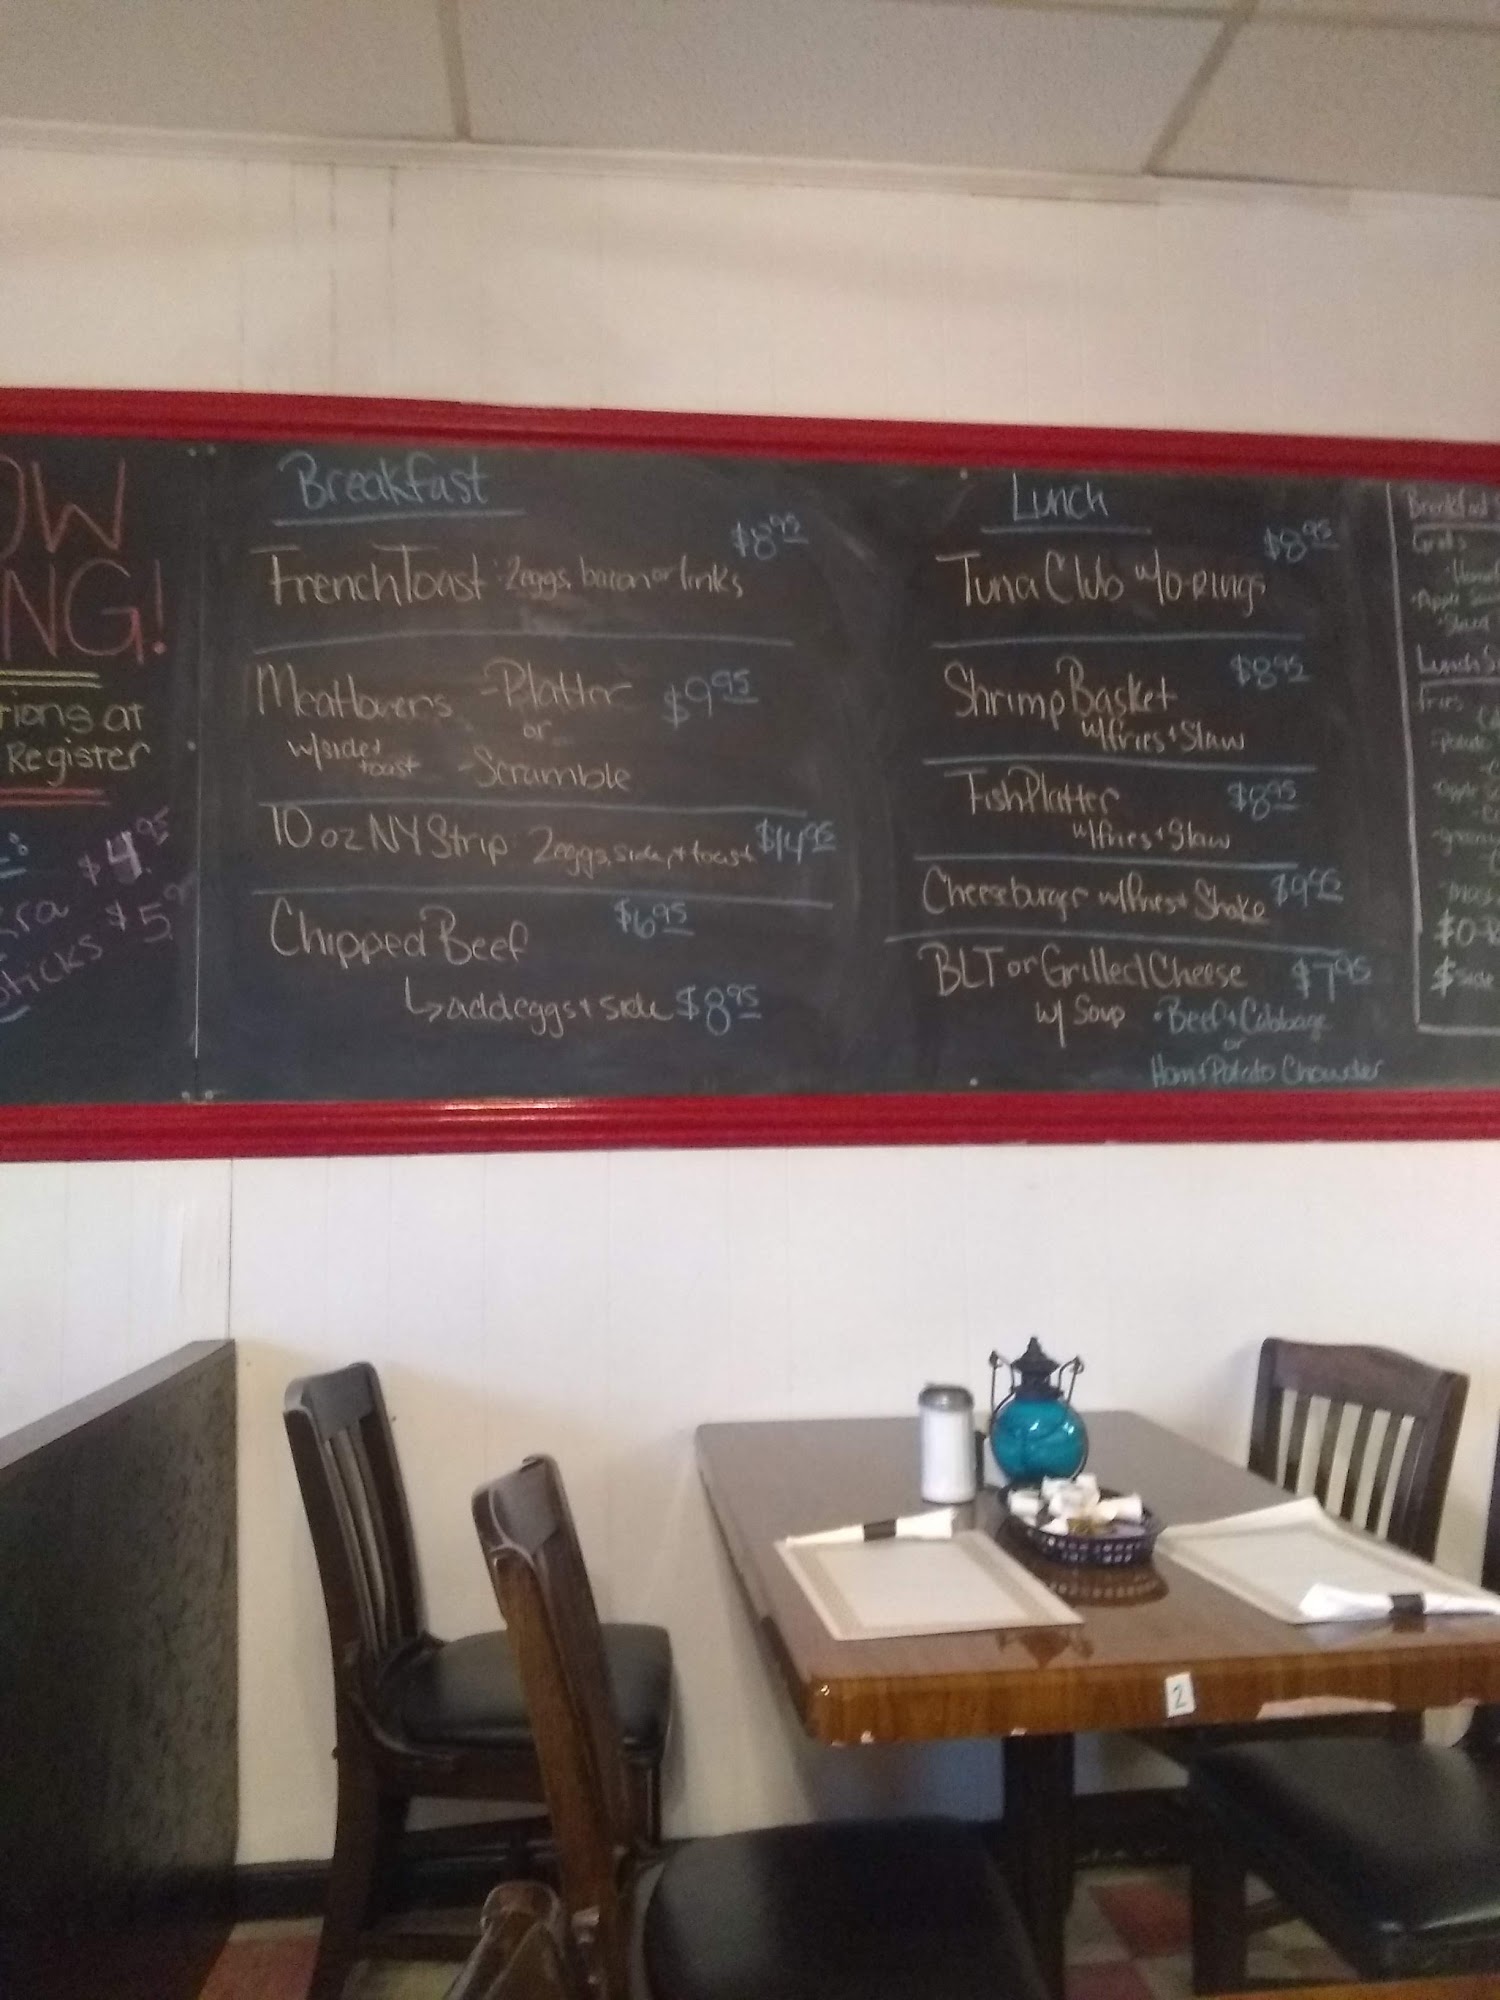 NG!
at
Register
$4.95
Breakfast
$8.95
French Toast: 2eggs, bacon or links
Meatlovers -Platter $9.95
or
w/side+
toast -Scramble
10 oz NY Strip 2eggs, side, + toast $14.95
Chipped Beef $6.95
↳add eggs + side $8.95
Lunch
$8.95
Tuna Club w/o-rings
Shrimp Basket $8.95
w/fries + Slaw
Fish Platter $8.95
w/fries + Slaw
Cheeseburger w/fries + Shake $9.95
BLT or Grilled Cheese $7.95
w/ Soup •Beef + Cabbage
or
Ham + Potato Chowder
Breakfast
Lunch
2